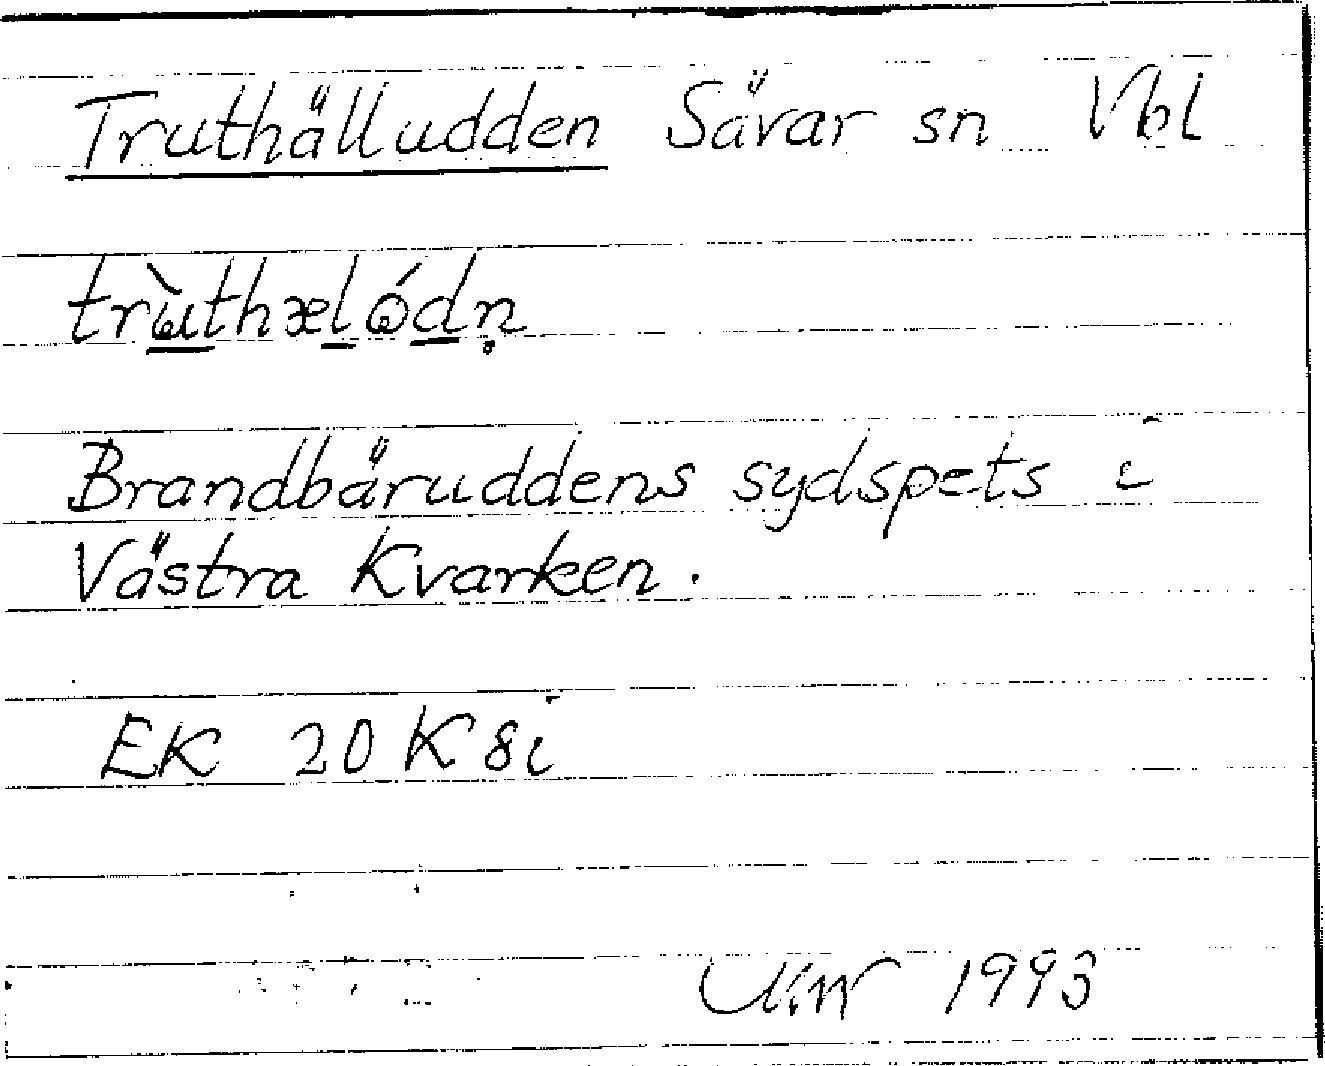 Truthälludden Sävar sn Vbl
trɷ̀thælɷ́dn̥
Brandbäruddens sydspets i
Västra Kvarken.
EK 20 K 8i
1993